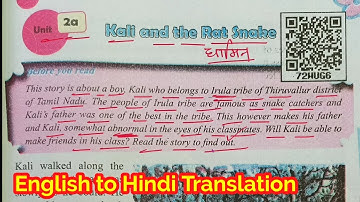 Unit 2a
Kali and the Rat Snake
धामिन
72HUG6
Before you read
This story is about a boy, Kali who belongs to Irula tribe of Thiruvallur district
of Tamil Nadu. The people of Irula tribe are famous as snake catchers and
Kali's father was one of the best in the tribe. This however makes his father
and Kali, somewhat abnormal in the eyes of his classmates. Will Kali be able to
make friends in his class? Read the story to find out.
Kali walked along the
English to Hindi Translation